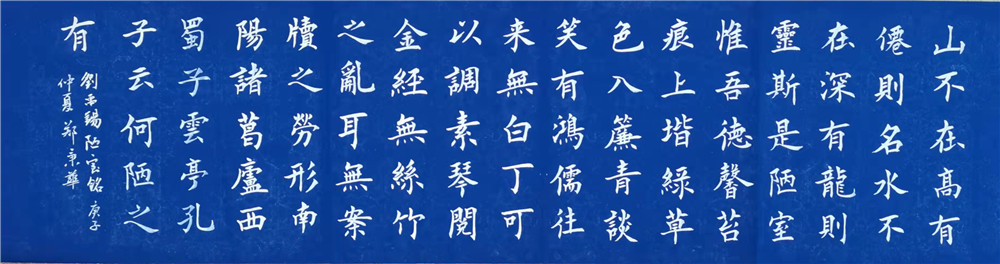 山不在高有
僊則名水不
在深有龍則
靈斯是陋室
惟吾德馨苔
痕上堦綠草
色入簾青談
笑有鴻儒往
来無白丁可
以調素琴閱
金經無絲竹
之亂耳無案
牘之勞形南
陽諸葛廬西
蜀子雲亭孔
子云何陋之
有
劉禹錫陋室銘 庚子
仲夏郑華